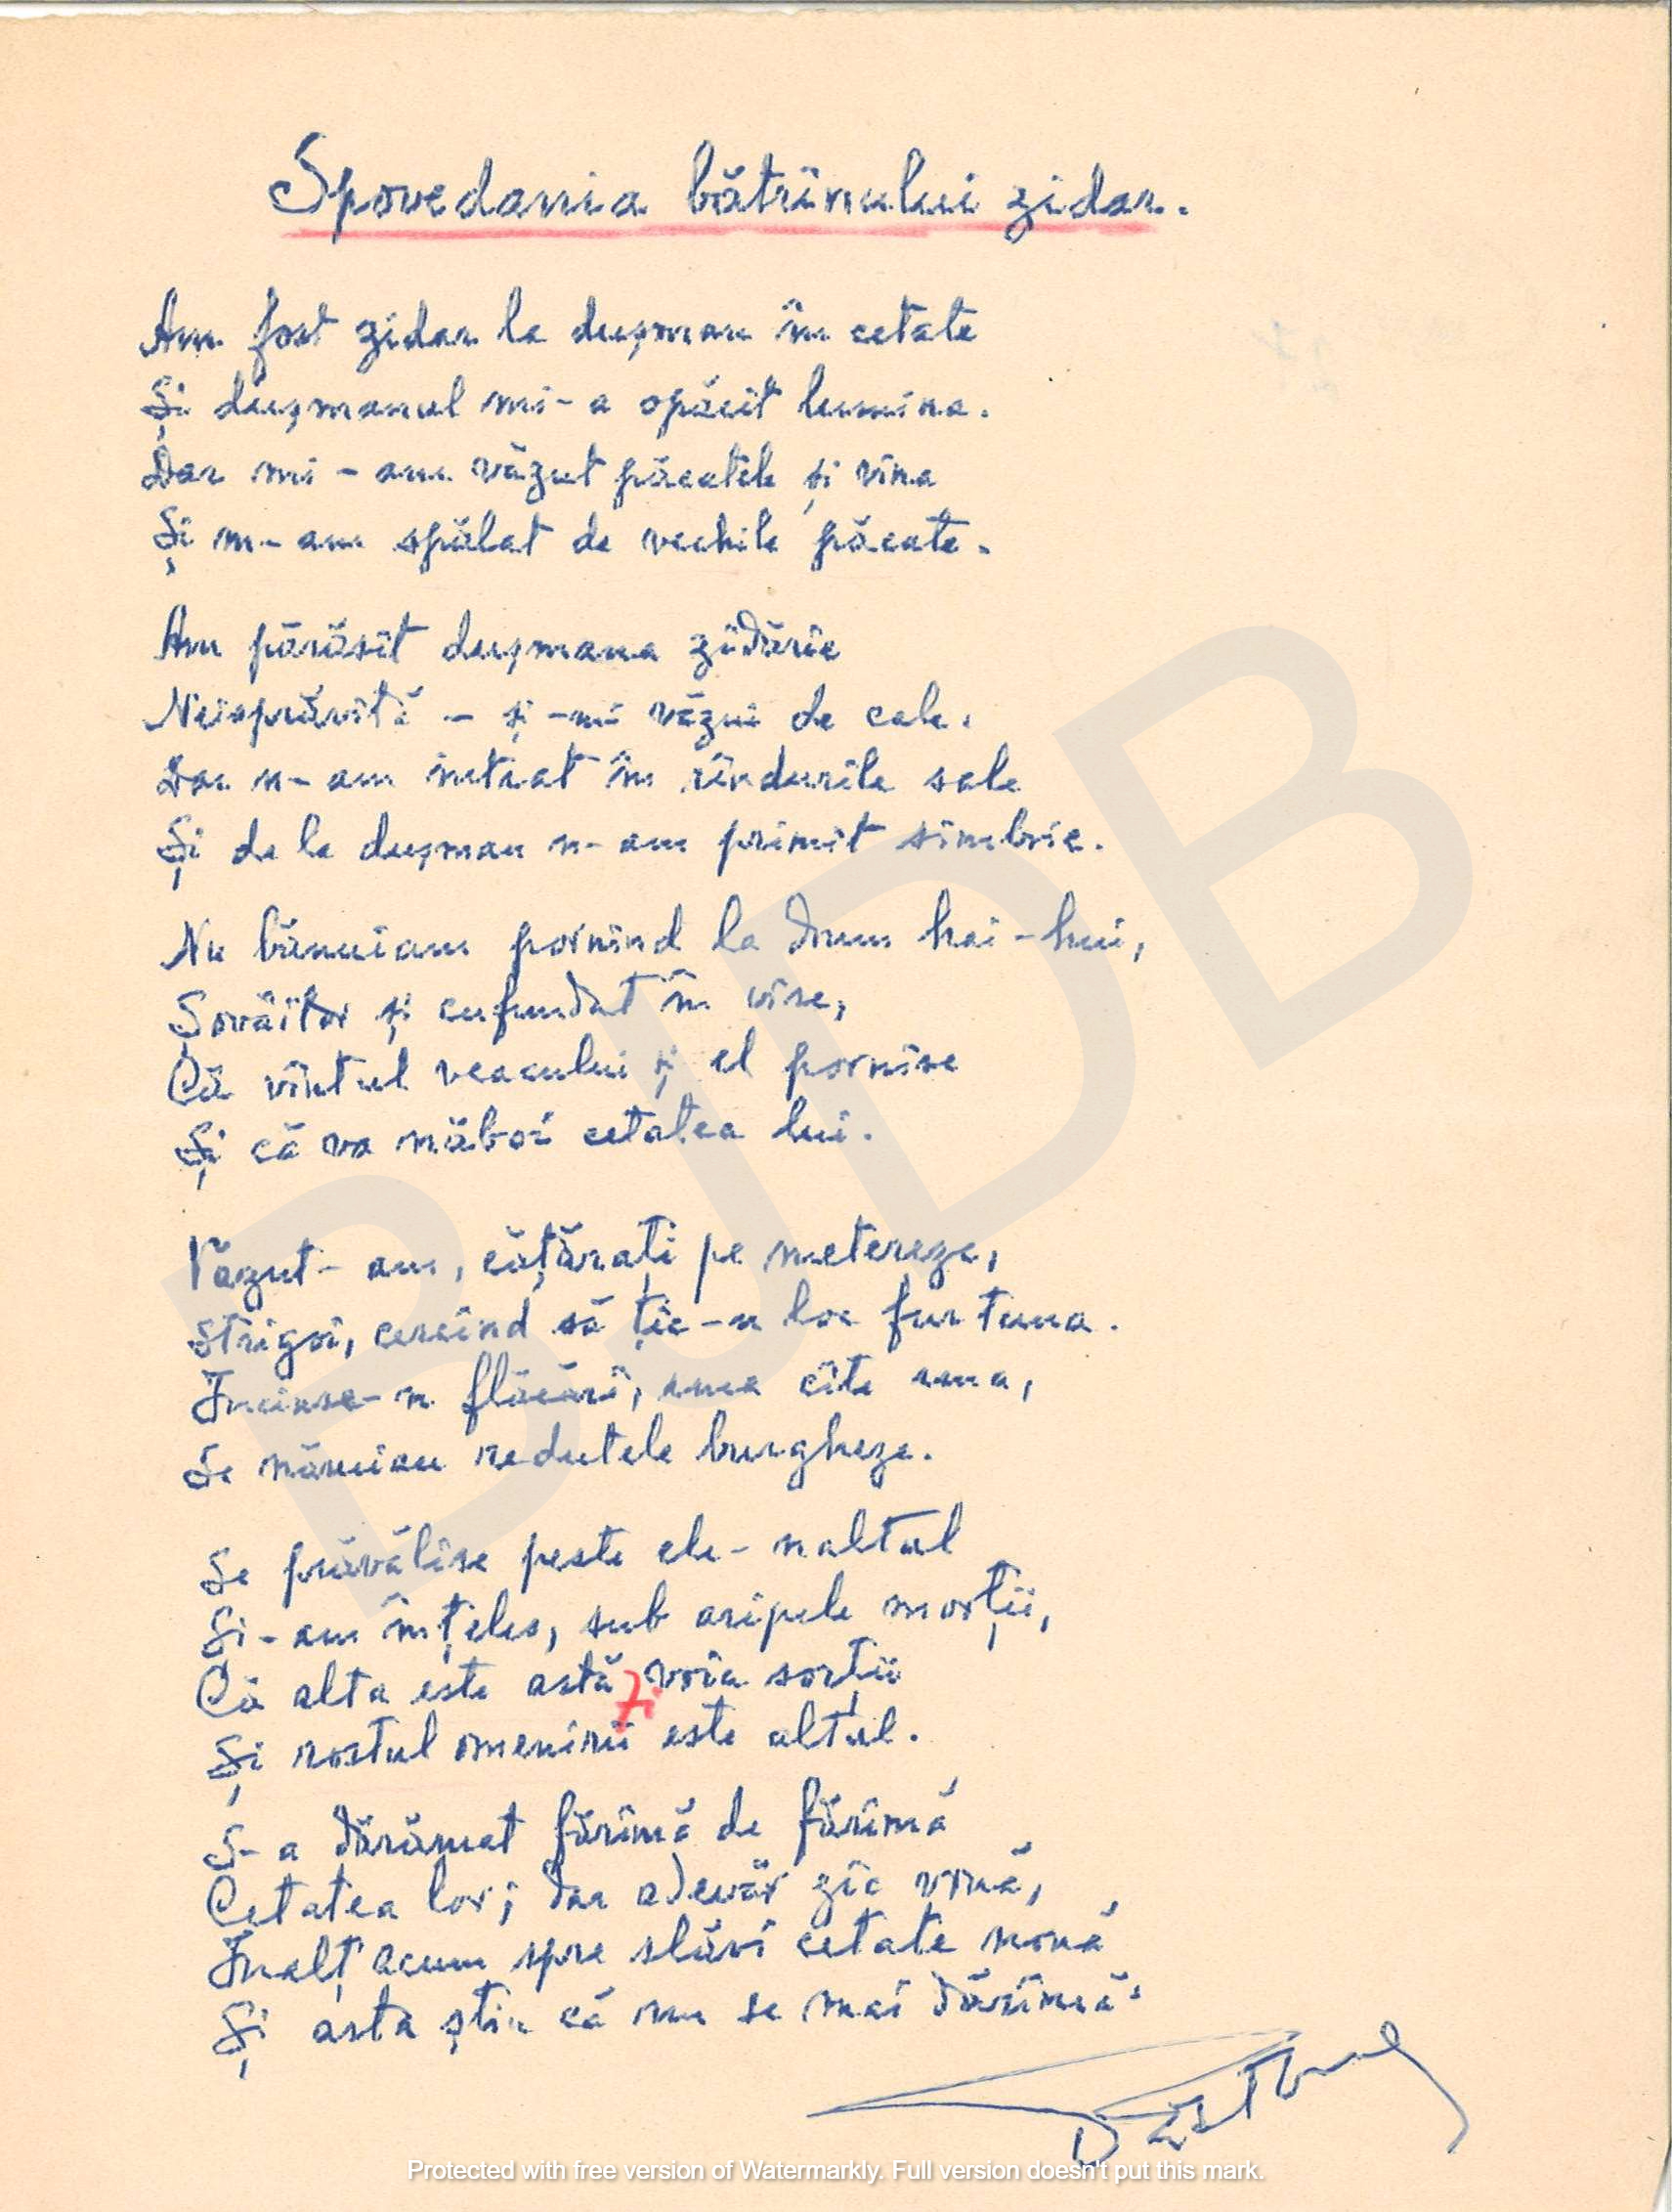 Spovedania bătrînului zidar.
Am fost zidar la dușman în cetate
Și dușmanul mi-a opăcit lumina.
Dar mi-am văzut păcatele și vina
Și m-am spălat de vechile păcate.
Am părăsit dușmana zidărie
Neisprăvită - și-mi văzui de cale.
Dar n-am intrat în rîndurile sale
Și de la dușman n-am primit simbrie.
Nu bănuiam pornind la drum hai-hui,
Șovăitor și cufundat în vise,
Că vîntul veacului și el pornise
Și că va năboi cetatea lui.
Văzut-am, cățărați pe metereze,
Strigoi, cercînd să ție-n loc furtuna.
Încinse-n flăcări, una cîte una,
Se năruiau redutele burgheze.
Se prăvălise peste ele-naltul
Si-am înțeles, sub aripele morții,
Că alta este astăzi voia sorții
Și rostul omenirii este altul.
S-a dărâmat fărîmă de fărîmă
Cetatea lor; dar adevăr zic vouă,
Înalț acum spre slăvi cetate nouă
Și asta știu că nu se mai dărîmă.
BJDB
Protected with free version of Watermarkly. Full version doesn't put this mark.